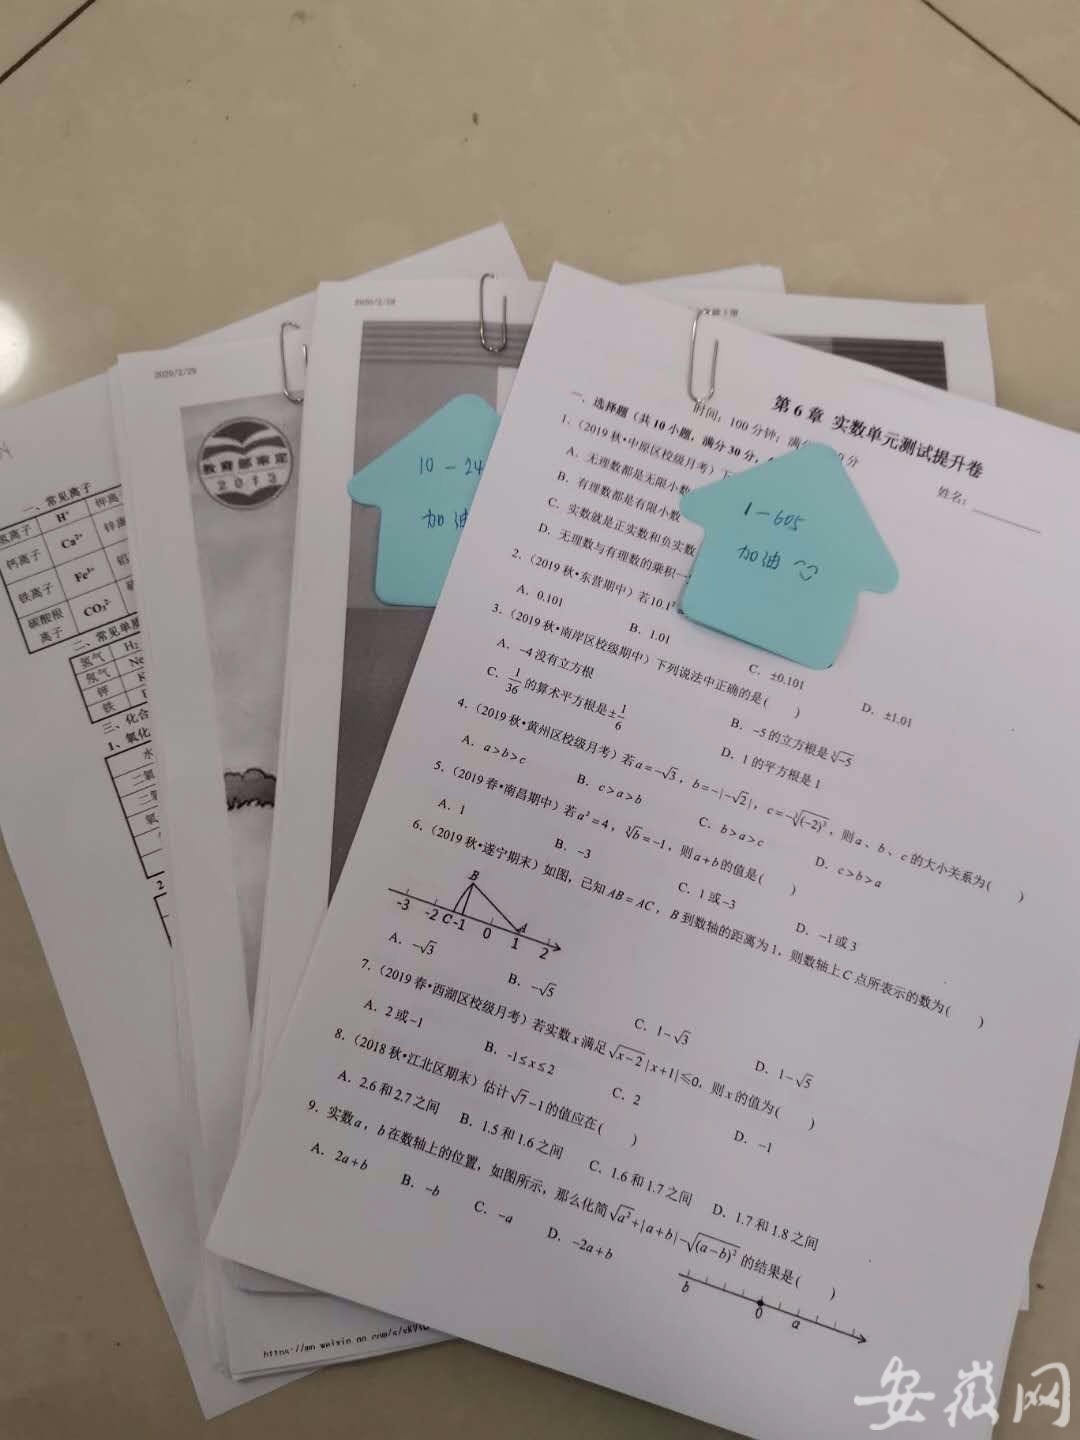 一、常见离子
氢离子 H⁺ 钾离
钙离子 Ca²⁺
铁离子 Fe³⁺
碳酸根离子 CO₃²⁻
二、常见单质
氢气 H₂
氖气 Ne
钾 K
铁
三、化合
1、氧化
水
2020/2/29
教育部审定
2013
https://mp.weixin.qq.com/s/
2020/2/29
10-24
加油
第6章 实数单元测试提升卷
时间:100分钟;满分
姓名:
一、选择题(共10小题,满分30分,
1.(2019秋•中原区校级月考)下
A.无理数都是无限小数
B.有理数都是有限小数
C.实数就是正实数和负实数
D.无理数与有理数的乘积一
1-605
加油
2.(2019秋•东营期中)若10.1²
A.0.101 B.1.01 C.±0.101 D.±1.01
3.(2019秋•南岸区校级期中)下列说法中正确的是( )
A.-4没有立方根 B.-5的立方根是∛-5
C.1/36的算术平方根是±1/6 D.1的平方根是1
4.(2019秋•黄州区校级月考)若a=-√3,b=-|-√2|,c=-∛(-2)³,则a、b、c的大小关系为( )
A.a>b>c B.c>a>b C.b>a>c D.c>b>a
5.(2019春•南昌期中)若a²=4,∛b=-1,则a+b的值是( )
A.1 B.-3 C.1或-3 D.-1或3
6.(2019秋•遂宁期末)如图,已知AB=AC,B到数轴的距离为1,则数轴上C点所表示的数为( )
B
-3 -2 C -1 0 1 A 2
A.-√3 B.-√5 C.1-√3 D.1-√5
7.(2019春•西湖区校级月考)若实数x满足√x-2|x+1|≤0,则x的值为( )
A.2或-1 B.-1≤x≤2 C.2 D.-1
8.(2018秋•江北区期末)估计√7-1的值应在( )
A.2.6和2.7之间 B.1.5和1.6之间 C.1.6和1.7之间 D.1.7和1.8之间
9.实数a,b在数轴上的位置,如图所示,那么化简√a²+|a+b|-√(a-b)²的结果是( )
A.2a+b B.-b C.-a D.-2a+b
b 0 a
安徽网